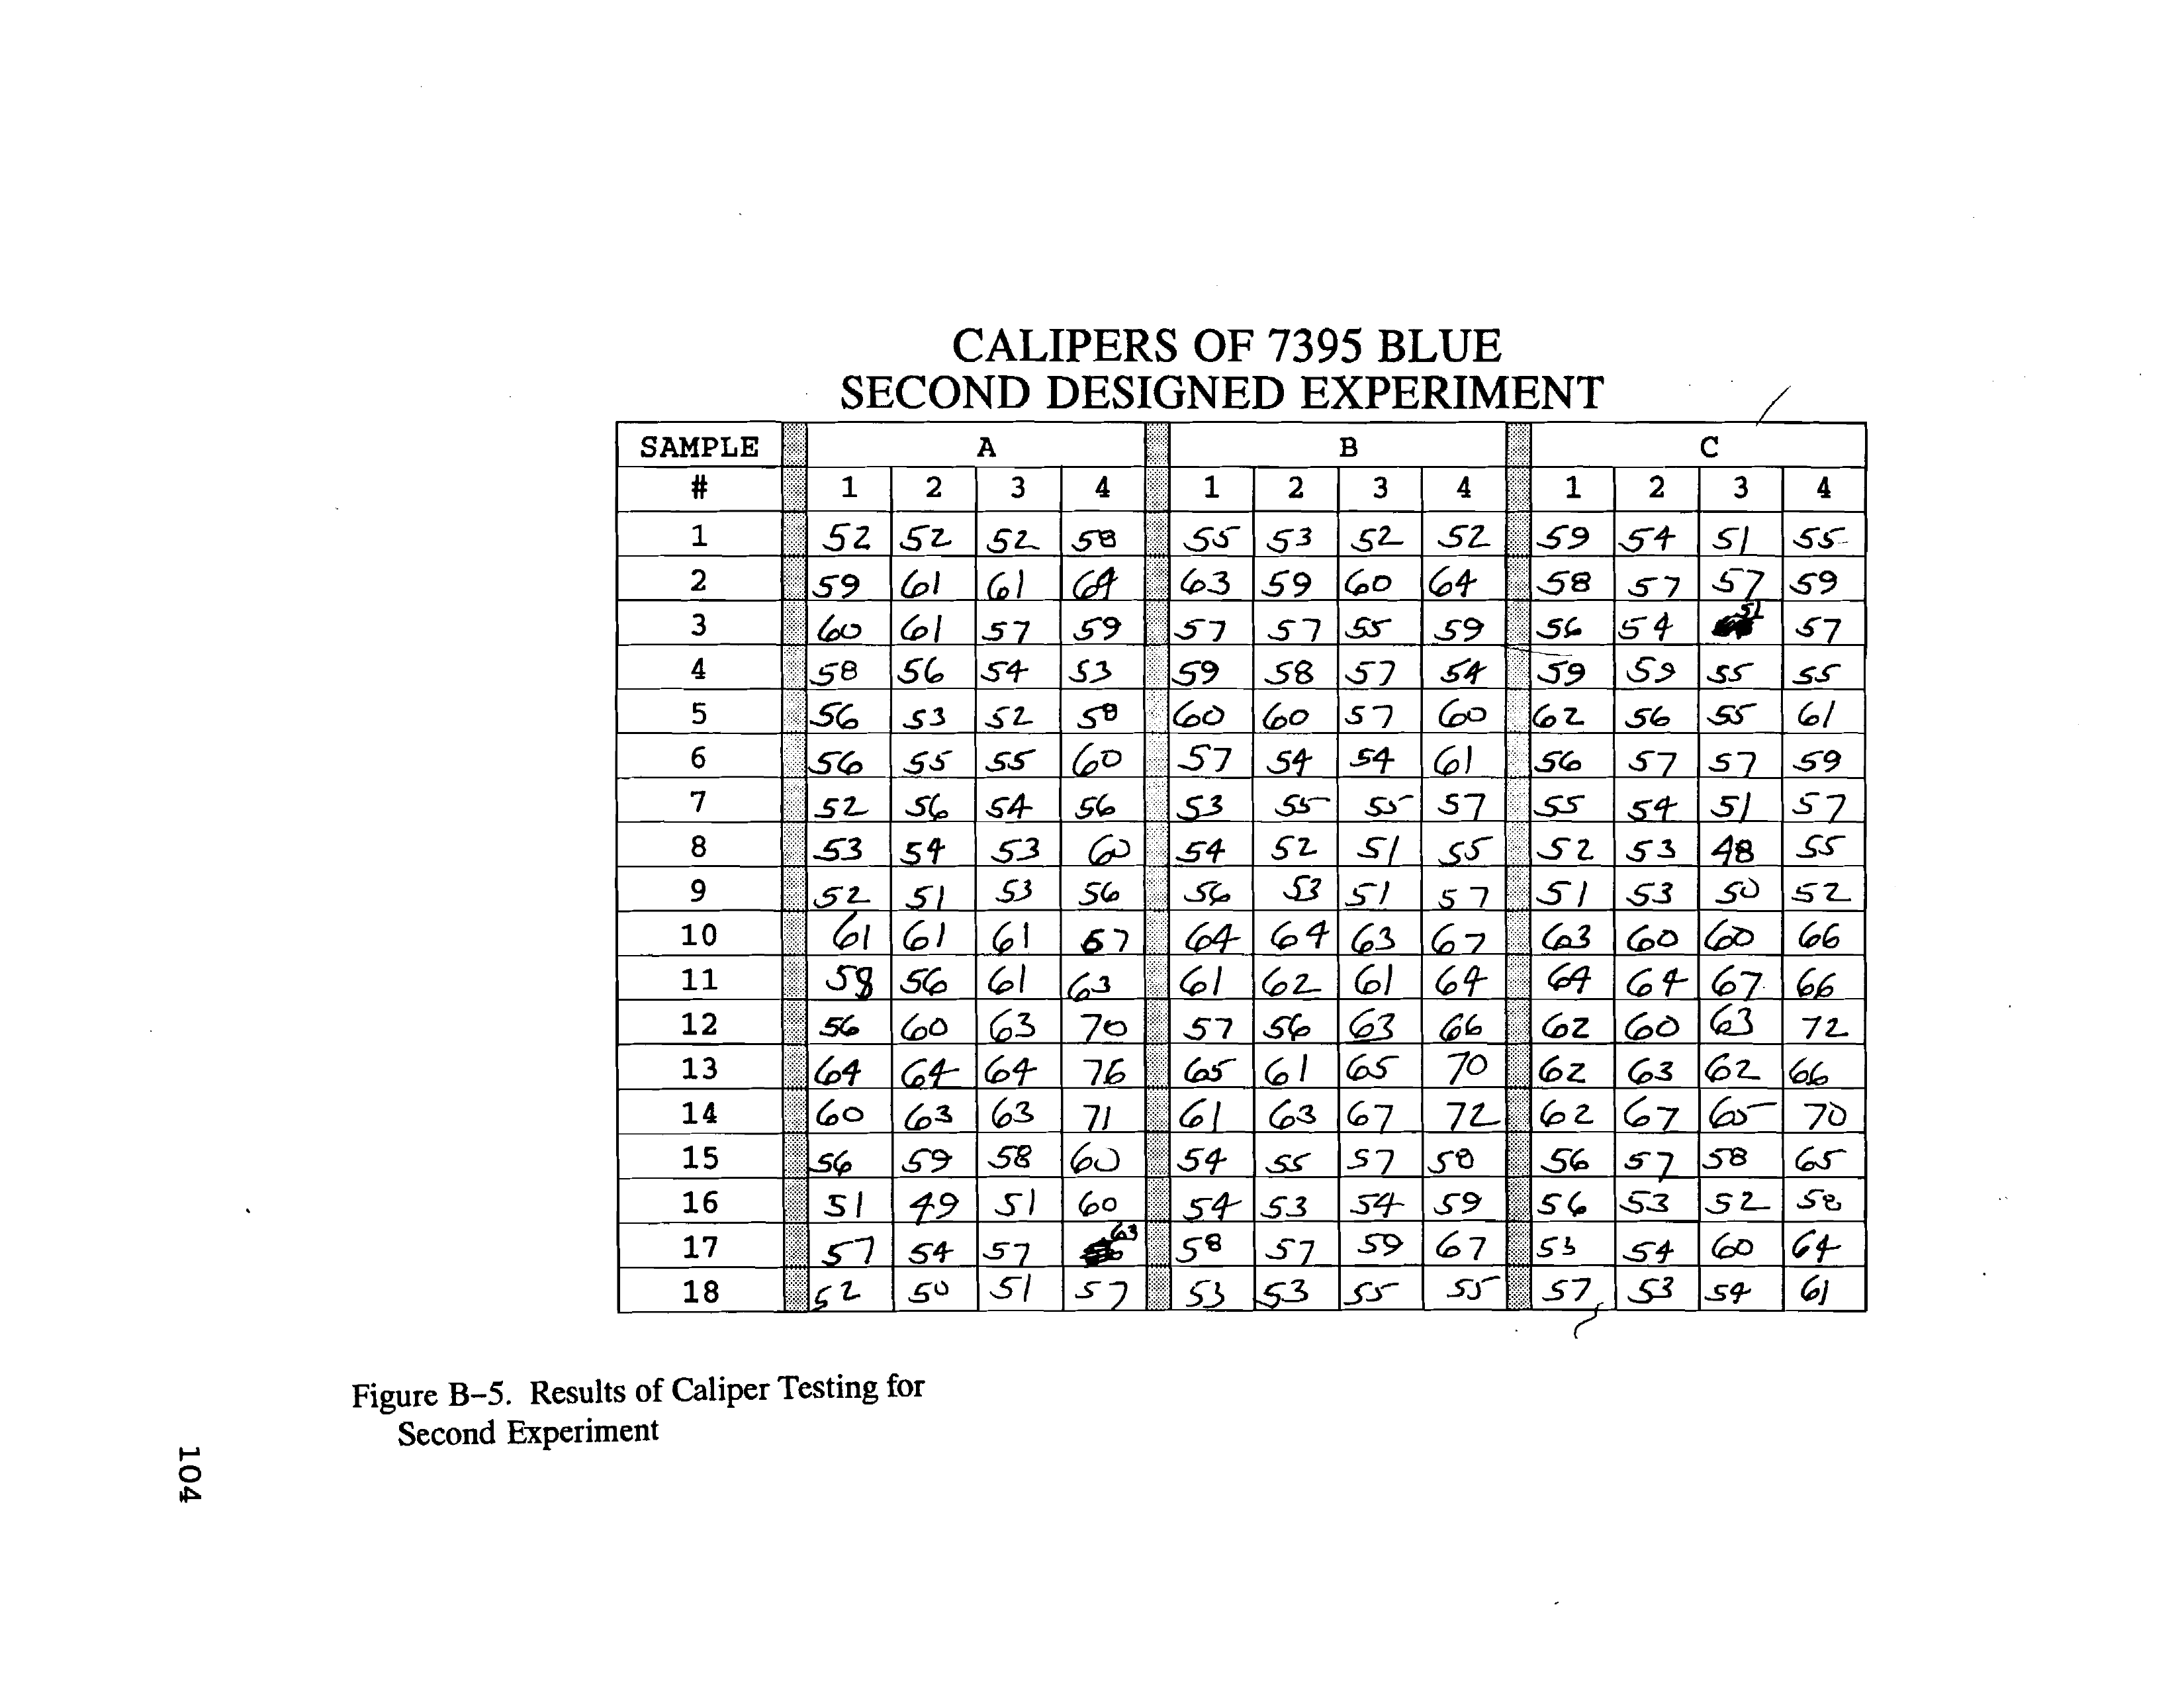 CALIPERS OF 7395 BLUE
SECOND DESIGNED EXPERIMENT
SAMPLE A B C
# 1 2 3 4 1 2 3 4 1 2 3 4
1 52 52 52 58 55 53 52 52 59 54 51 55
2 59 61 61 64 63 59 60 64 58 57 57 59
3 60 61 57 59 57 57 55 59 56 54 51 57
4 58 56 54 53 59 58 57 54 59 59 55 55
5 56 53 52 58 60 60 57 60 62 56 55 61
6 56 55 55 60 57 54 54 61 56 57 57 59
7 52 56 54 56 53 55 55 57 55 54 51 57
8 53 54 53 60 54 52 51 55 52 53 48 55
9 52 51 53 56 56 53 51 57 51 53 50 52
10 61 61 61 67 64 64 63 67 63 60 60 66
11 58 56 61 63 61 62 61 64 64 64 67 66
12 56 60 63 70 57 56 63 66 62 60 63 72
13 64 64 64 76 65 61 65 70 62 63 62 66
14 60 63 63 71 61 63 67 72 62 67 65 70
15 56 59 58 60 54 55 57 58 56 57 58 65
16 51 49 51 60 54 53 54 59 56 53 52 58
17 57 54 57 63 58 57 59 67 53 54 60 64
18 52 50 51 57 53 53 55 55 57 53 54 61
Figure B-5. Results of Caliper Testing for
Second Experiment
104